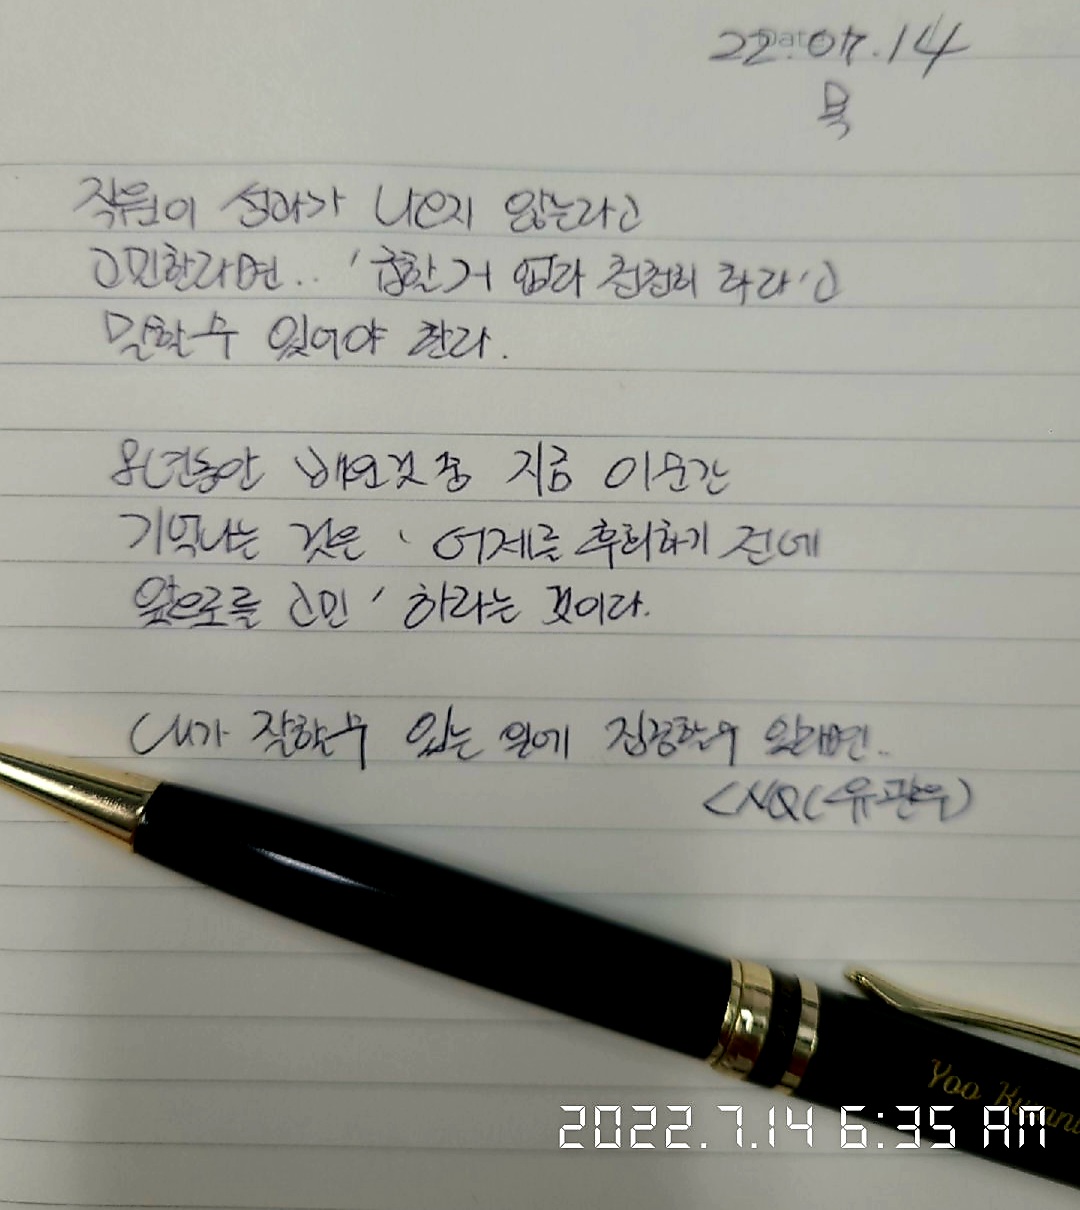 22.07.14
목
직원이 성과가 나오지 않는다고
고민한다면.. '급한거 없다 천천히 하라'고
말할수 있어야 한다.
8년동안 배운것 중 지금 이순간
기억나는 것은 '어제를 후회하기 전에
앞으로를 고민' 하라는 것이다.
내가 잘할수 있는 일에 집중할수 있다면..
(유관우)
Yoo
2022.7.14 6:35 AM